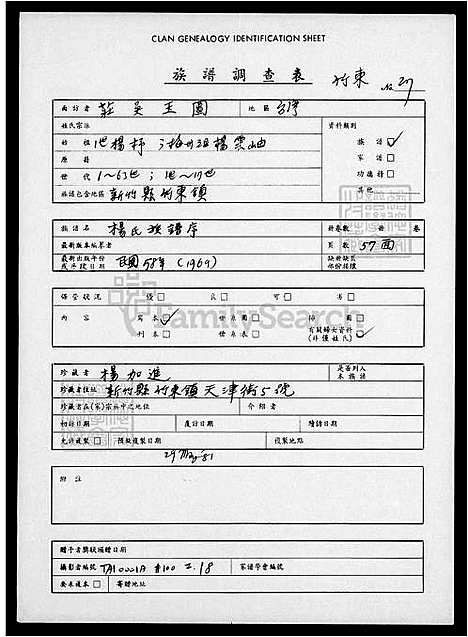 CLAN GENEALOGY IDENTIFICATION SHEET
族譜調查表 竹東 No 27
面訪者 莊吳玉圖 地區 台灣
姓氏宗派 資料類別
始祖 1世楊杼 梅州祖楊雲岫 族譜
原籍 家譜
世代 1~63世 1世~19世 功德榜
族譜包含地區 新竹縣竹東鎮 其他
族譜名 楊氏族譜序 冊卷數 冊 卷
最新版本編纂者 頁數 57面
最新出版年份或手段日期 民國58年 (1969) 缺冊缺頁部份標號
保管狀況 優 良 可 劣
FamilySearch
內容 寫本 世系圖 像圖 有關婦女資料(非僅姓氏)
刊本 世系表
珍藏者 楊加進 是否列入本族譜
珍藏者住址 新竹縣竹東鎮天津街5號
珍藏者在(家)宗族中之地位 介紹者
初訪日期 複訪日期 續訪日期
允許複製 預擬複製日期 複製地點
29 May 81
附註
贈予者獎狀頒贈日期
攝影者編號 TA10001A #100 二.18 家譜學會編號
要求複本 寄贈地址